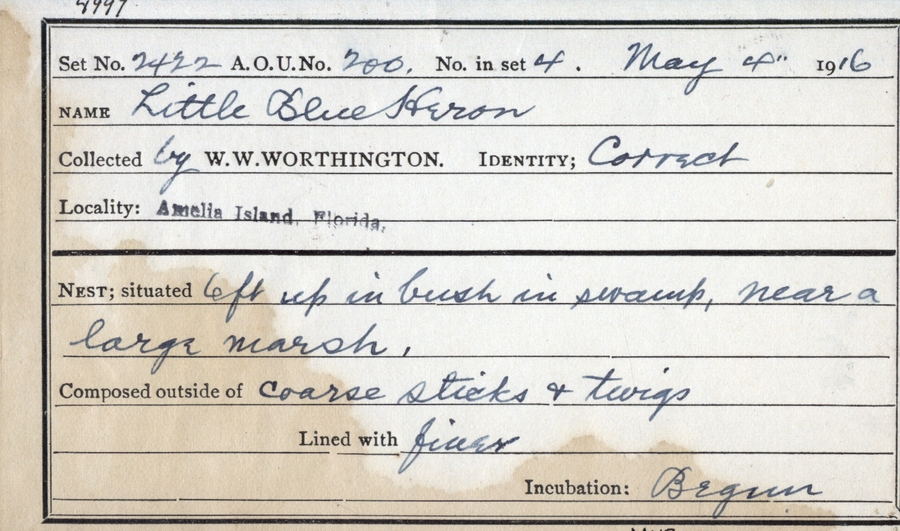 Set No. 2422 A.O.U.No. 200. No. in set 4. May 4" 1916
NAME Little Blue Heron
Collected by W.W.WORTHINGTON. IDENTITY; Correct
Locality: Amelia Island, Florida.
NEST; situated 6ft up in bush in swamp, near a
large marsh.
Composed outside of coarse sticks & twigs
Lined with finer
Incubation: Begun